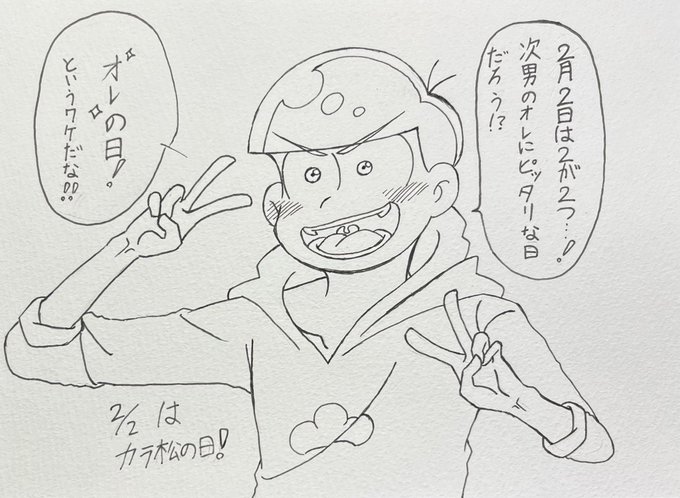 2月2日は2が2つ…!
次男のオレにピッタリな日
だろう!?
オレの日!
というワケだな!!
2/2 は
カラ松の日!